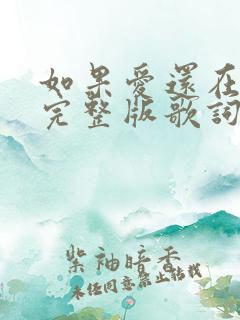 如果愛還在
完整版歌詞
紫袖暗香
未經同意禁止轉載